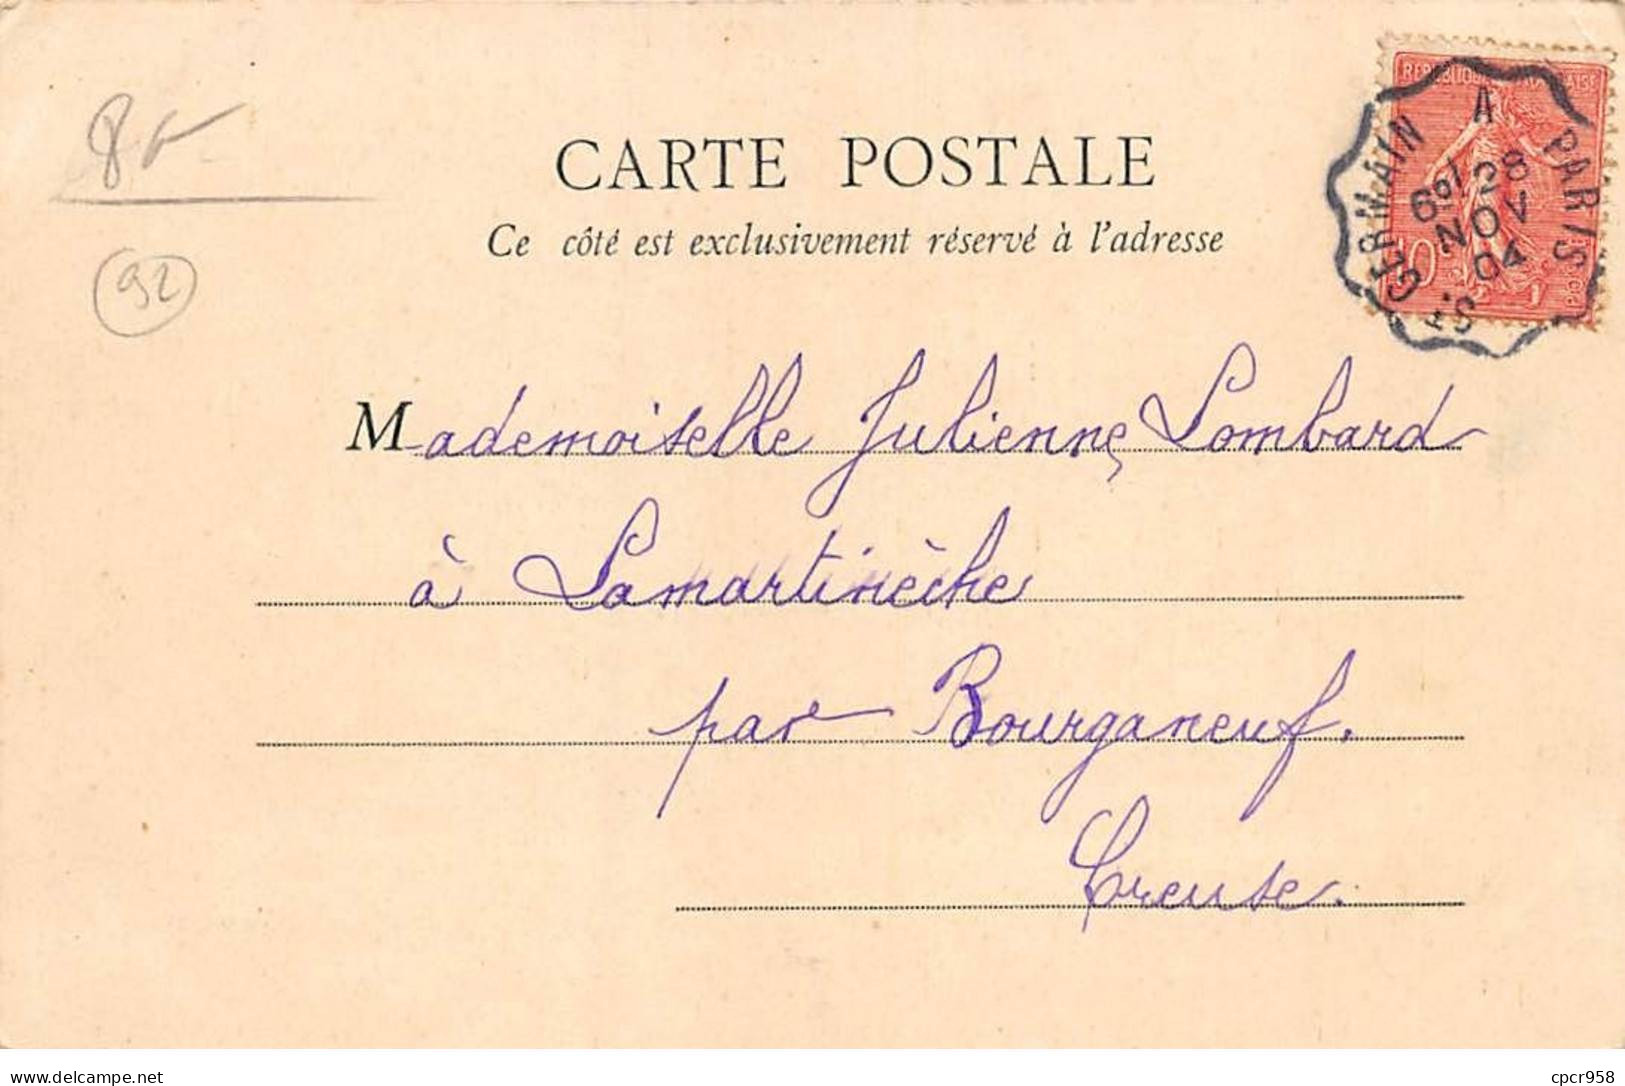 8
CARTE POSTALE
Ce côté est exclusivement réservé à l'adresse
92
REPUBLIQUE FRANÇAISE
10
POSTES
ST GERMAIN A PARIS
28
NOV
04
Mademoiselle Julienne Lombard
à Lamartinèche
par Bourganeuf.
Creuse.
delcampe.net
cpcr958